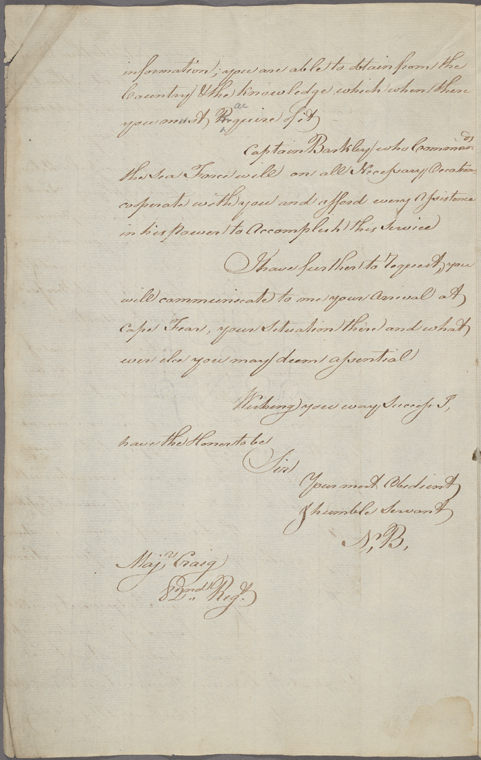 information; you are able to obtain from the
Country & the knowledge which when there
you must Acquire of it
Captain Barkley who Commands
the Sea Force will on all Necessary Occations
coperate with you and afford every Assistance
in his Power to Accomplish this Service
I have further to Request, you
will communicate to me your Arrival at
Cape Fear, your Situation there and what
ever else you may deem assential
Wishing you every Success I,
have the Honor to be
Sir
Your most Obedient
& humble Servant
N, B,
Majr. Craig
82nd Regt.